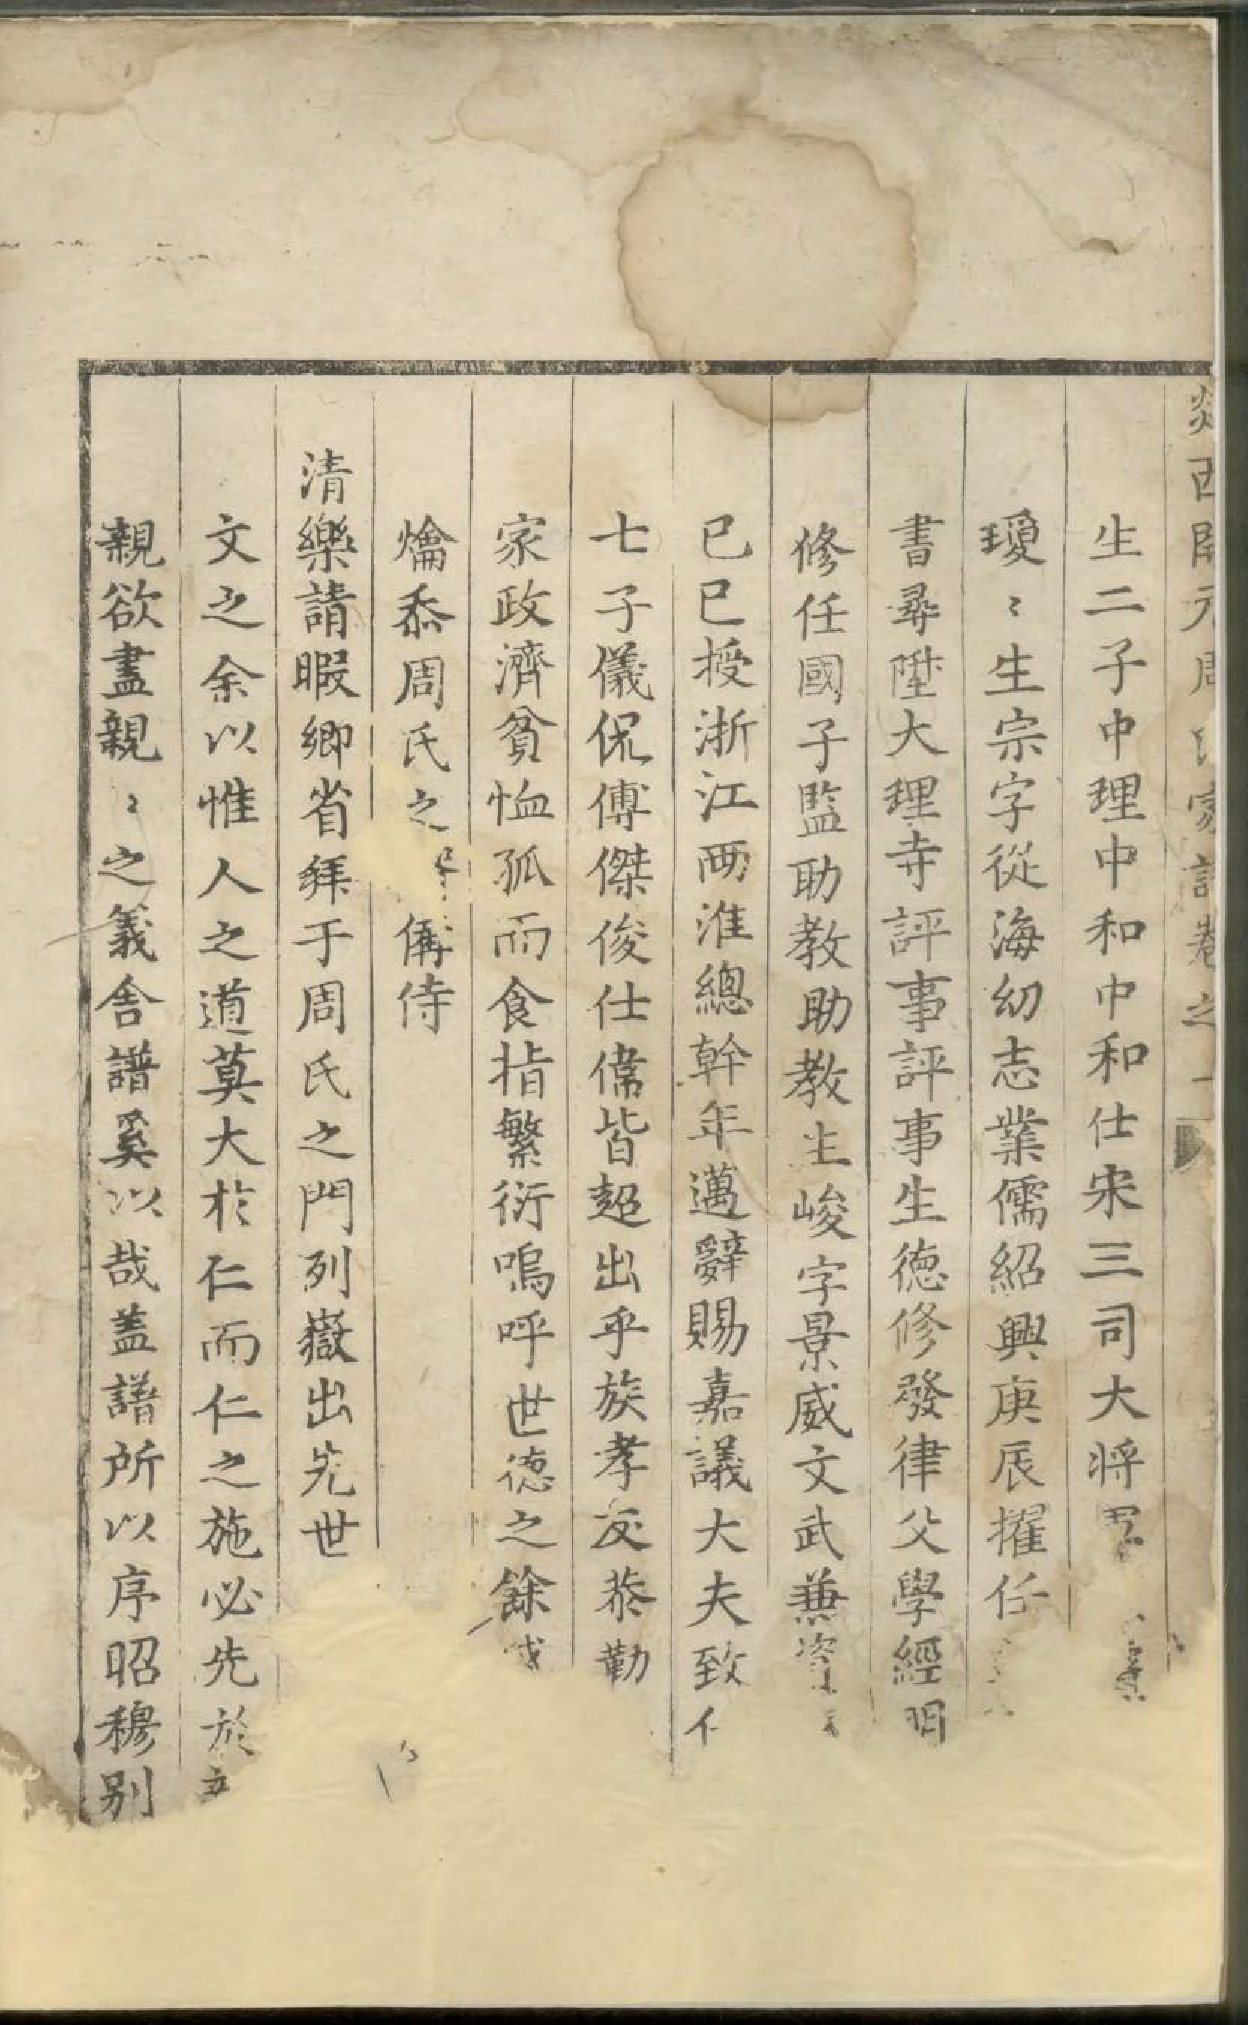 西開元周氏家譜卷之一
生二子中理中和中和仕宋三司大将
瑷〻生宗字從海幼志業儒紹興庚辰擢任
書尋陞大理寺評事評事生德修發律父學經明
修任國子監助教助教生峻字景威文武兼資
已巳授浙江兩淮總幹年邁辭賜嘉議大夫致仕
七子儀侃傅傑俊仕偉皆超出乎族孝友恭勤
家政濟貧恤孤而食指繁衍嗚呼世德之餘
爚忝周氏之 侍
清樂請暇鄉省拜于周氏之門列嶽出先世
文之余以惟人之道莫大於仁而仁之施必先於
親欲盡親〻之義舍譜奚以哉盖譜所以序昭穆别